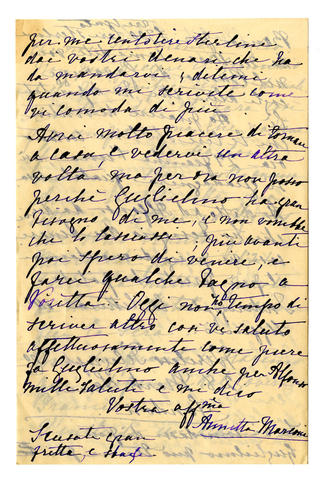 per me ventotire Sterline
dai vostri denari che ha
da mandarvi; ditemi
quando mi scrivete come
vi comoda di più
Avrei molto piacere di tornare
a casa, e vedervi un altra
volta ma per ora non posso
perchè Guglielmo ha gran
bisogno di me, e non vorrebbe
che lo lasciassi; più avanti
poi spero di venire, e
farei qualche bagno a
Oggi non ho tempo di
scriver altro con vi saluto
affettuosamente come pure
fa Guglielmo anche per Alfonso
mille saluti e mi dico
Vostra affma
Annetta Marconi
Scusate gran
fretta e